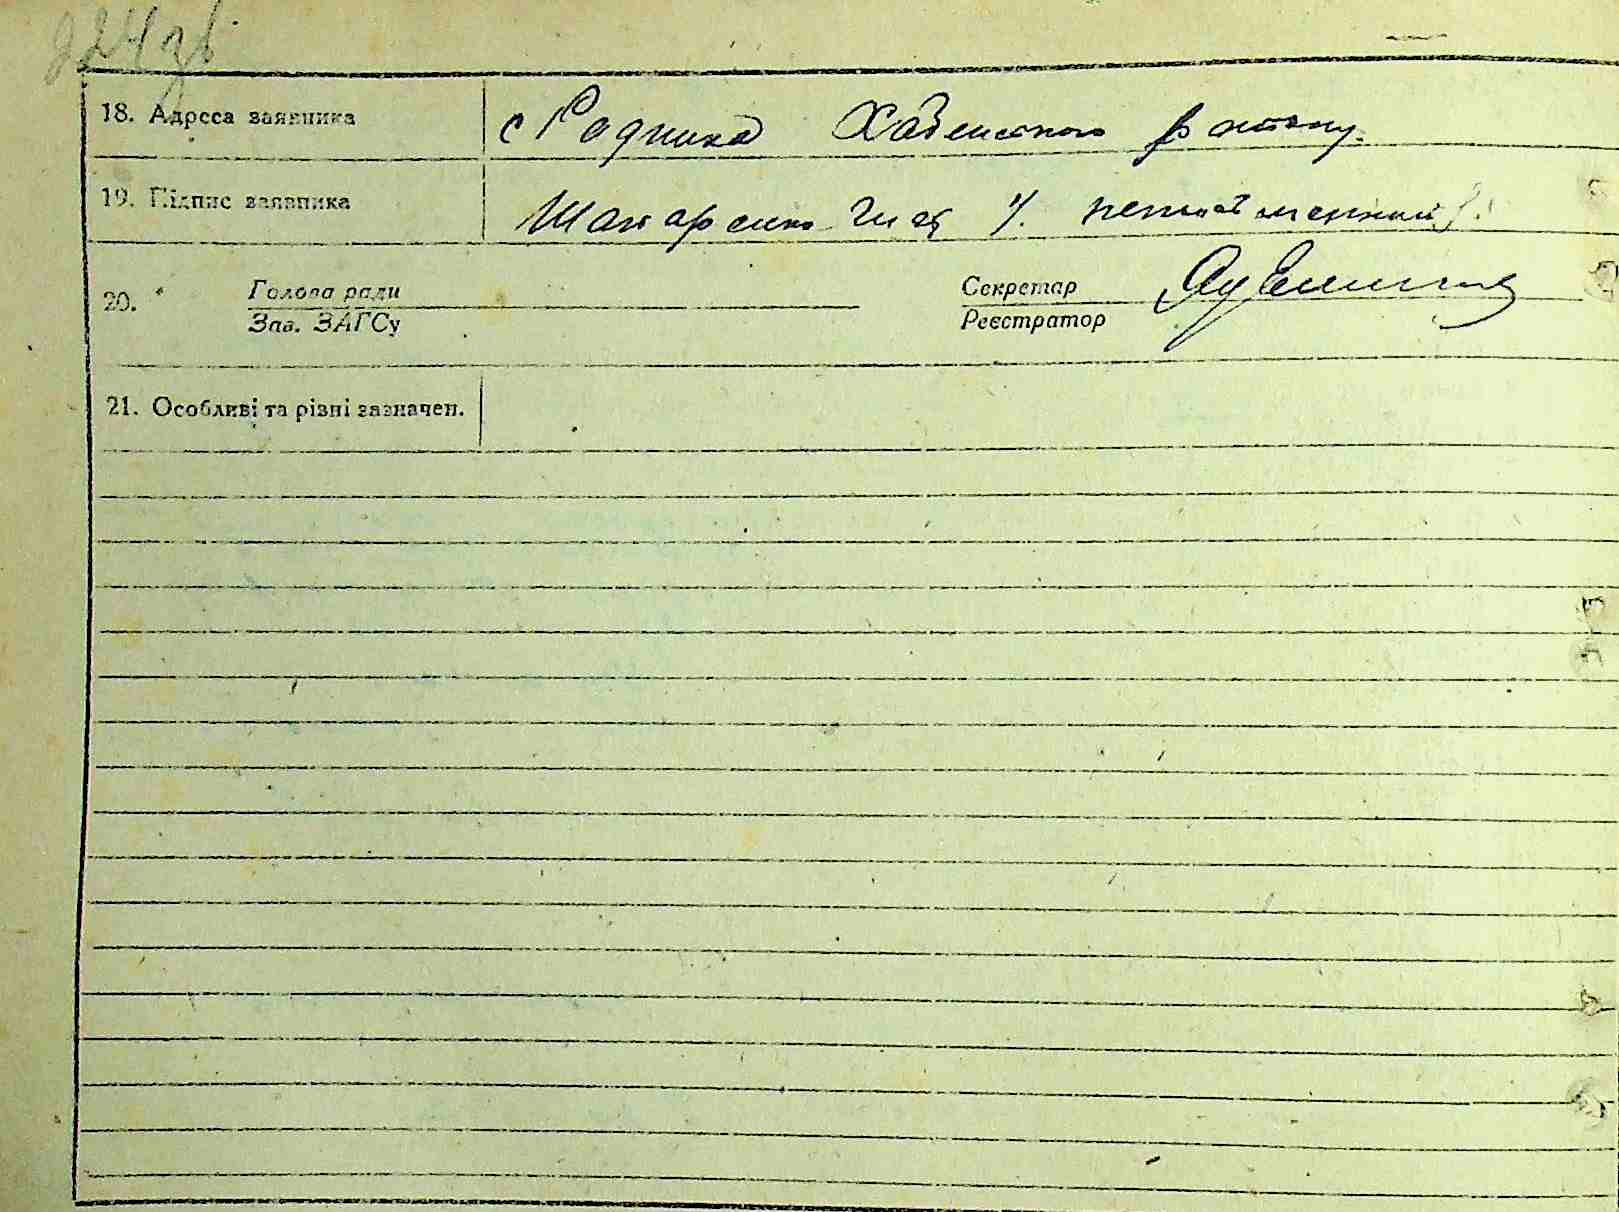 224 зв.
18. Адреса заявника с Родника Хабенского району.
19. Підпис заявника неписьменний
20. Голова ради Секретар
Зав. ЗАГСу Реєстратор
21. Особливі та різні зазначен.